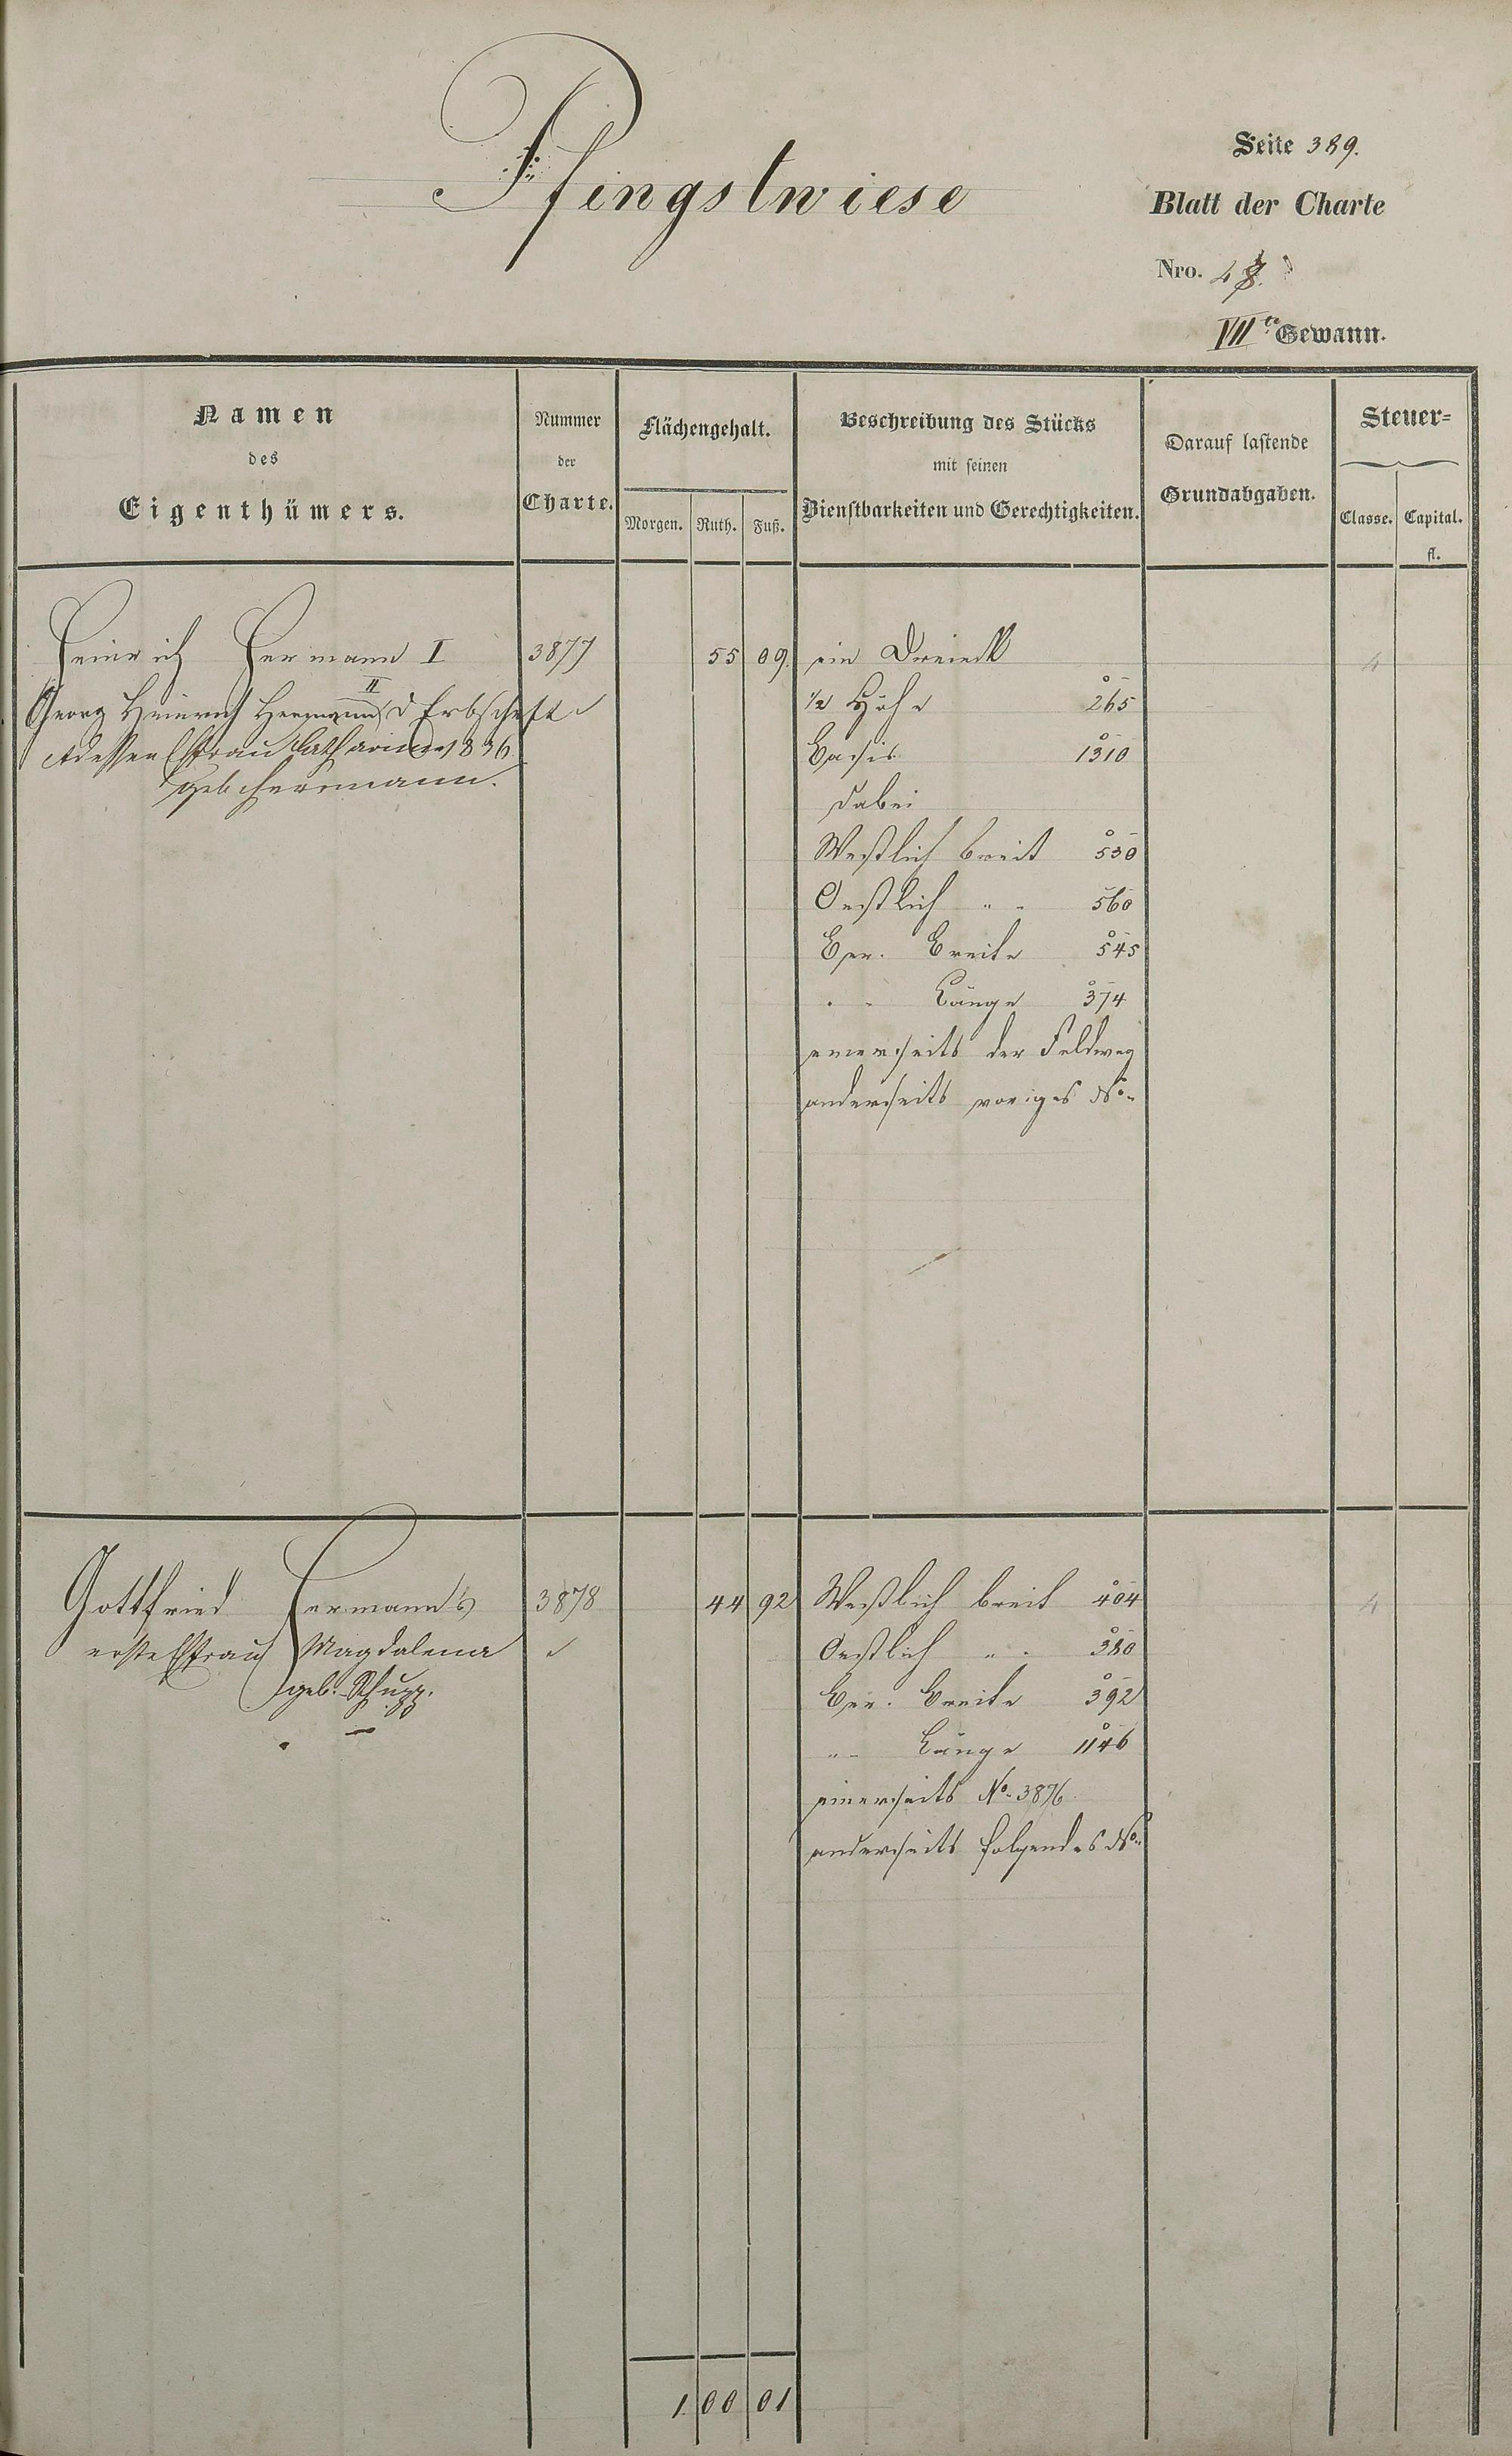 Pfingstwiese
Seite 389.
Blatt der Charte
Nro. 48.
VII te Gewann.
Namen
des
Eigenthümers.
Nummer
der
Charte.
Flächengehalt.
Morgen. Ruth. Fuß.
Beschreibung des Stücks
mit seinen
Dienstbarkeiten und Gerechtigkeiten.
Darauf lastende
Grundabgaben.
Steuer=
Classe. Capital.
fl.
Heinrich Hermann I 3877 55 09. ein Dreieck 4
Georg Heinrich Hermann II d Erbschaft 1/2 Höhe 265
dessen Ehfrau Catharina 1836 Basis 1310
geb. Herrmann. dabei
Westlich breit 530
Oestlich " " 560
Ber. Breite 545
" " Länge 374
einerseits der Feldweg
anderseits voriges No.
Gottfried Hermann's 3878 44 92 Westlich breit 404 4
erste Ehfrau Magdalena Oestlich " " 380
geb. Schupp. Ber. Breite 392
" " Länge 1146
einerseits No. 3876
anderseits folgendes No.
1. 00 01